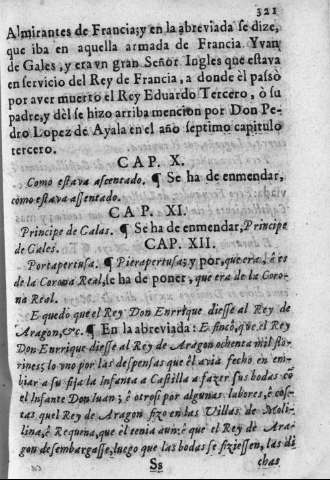 321
Almirantes de Francia; y en la abreviada se dize,
que iba en aquella armada de Francia Yvan
de Gales, y era vn gran Señor Ingles que estava
en servicio del Rey de Francia, a donde èl passò
por aver muerto el Rey Eduardo Tercero, ò su
padre, y dèl se hizo arriba mencion por Don Pe-
dro Lopez de Ayala en el año septimo capitulo
tercero.
CAP. X.
Como estava ascentado. ¶ Se ha de enmendar,
còmo estava assentado.
CAP. XI.
Principe de Galas. ¶ Se ha de enmendar, Principe
de Gales.
CAP. XII.
Portapertusa. ¶ Pierapertusa; y por, que era, è es
de la Corona Real, se ha de poner, que era de la Coro-
na Réal.
E quedò que el Rey Don Enrrique diesse al Rey de
Aragon, &c. ¶ En la abreviada: E fincò, que el Rey
Don Enrrique diesse al Rey de Aragon ochenta mil flo-
rines; lo vno por las despensas que èl avia fecho en en-
biar a su fija la Infanta a Castilla a fazer sus bodas con
el Infante Don Iuan; è otrosi por algunas labores, è cos-
tas que el Rey de Aragon fizo en las Villas de Moli-
na, è Requena, que èl tenia aun: è que el Rey de Ara-
gon desembargasse, luego que las bodas se fiziessen, las di
Ss
chas